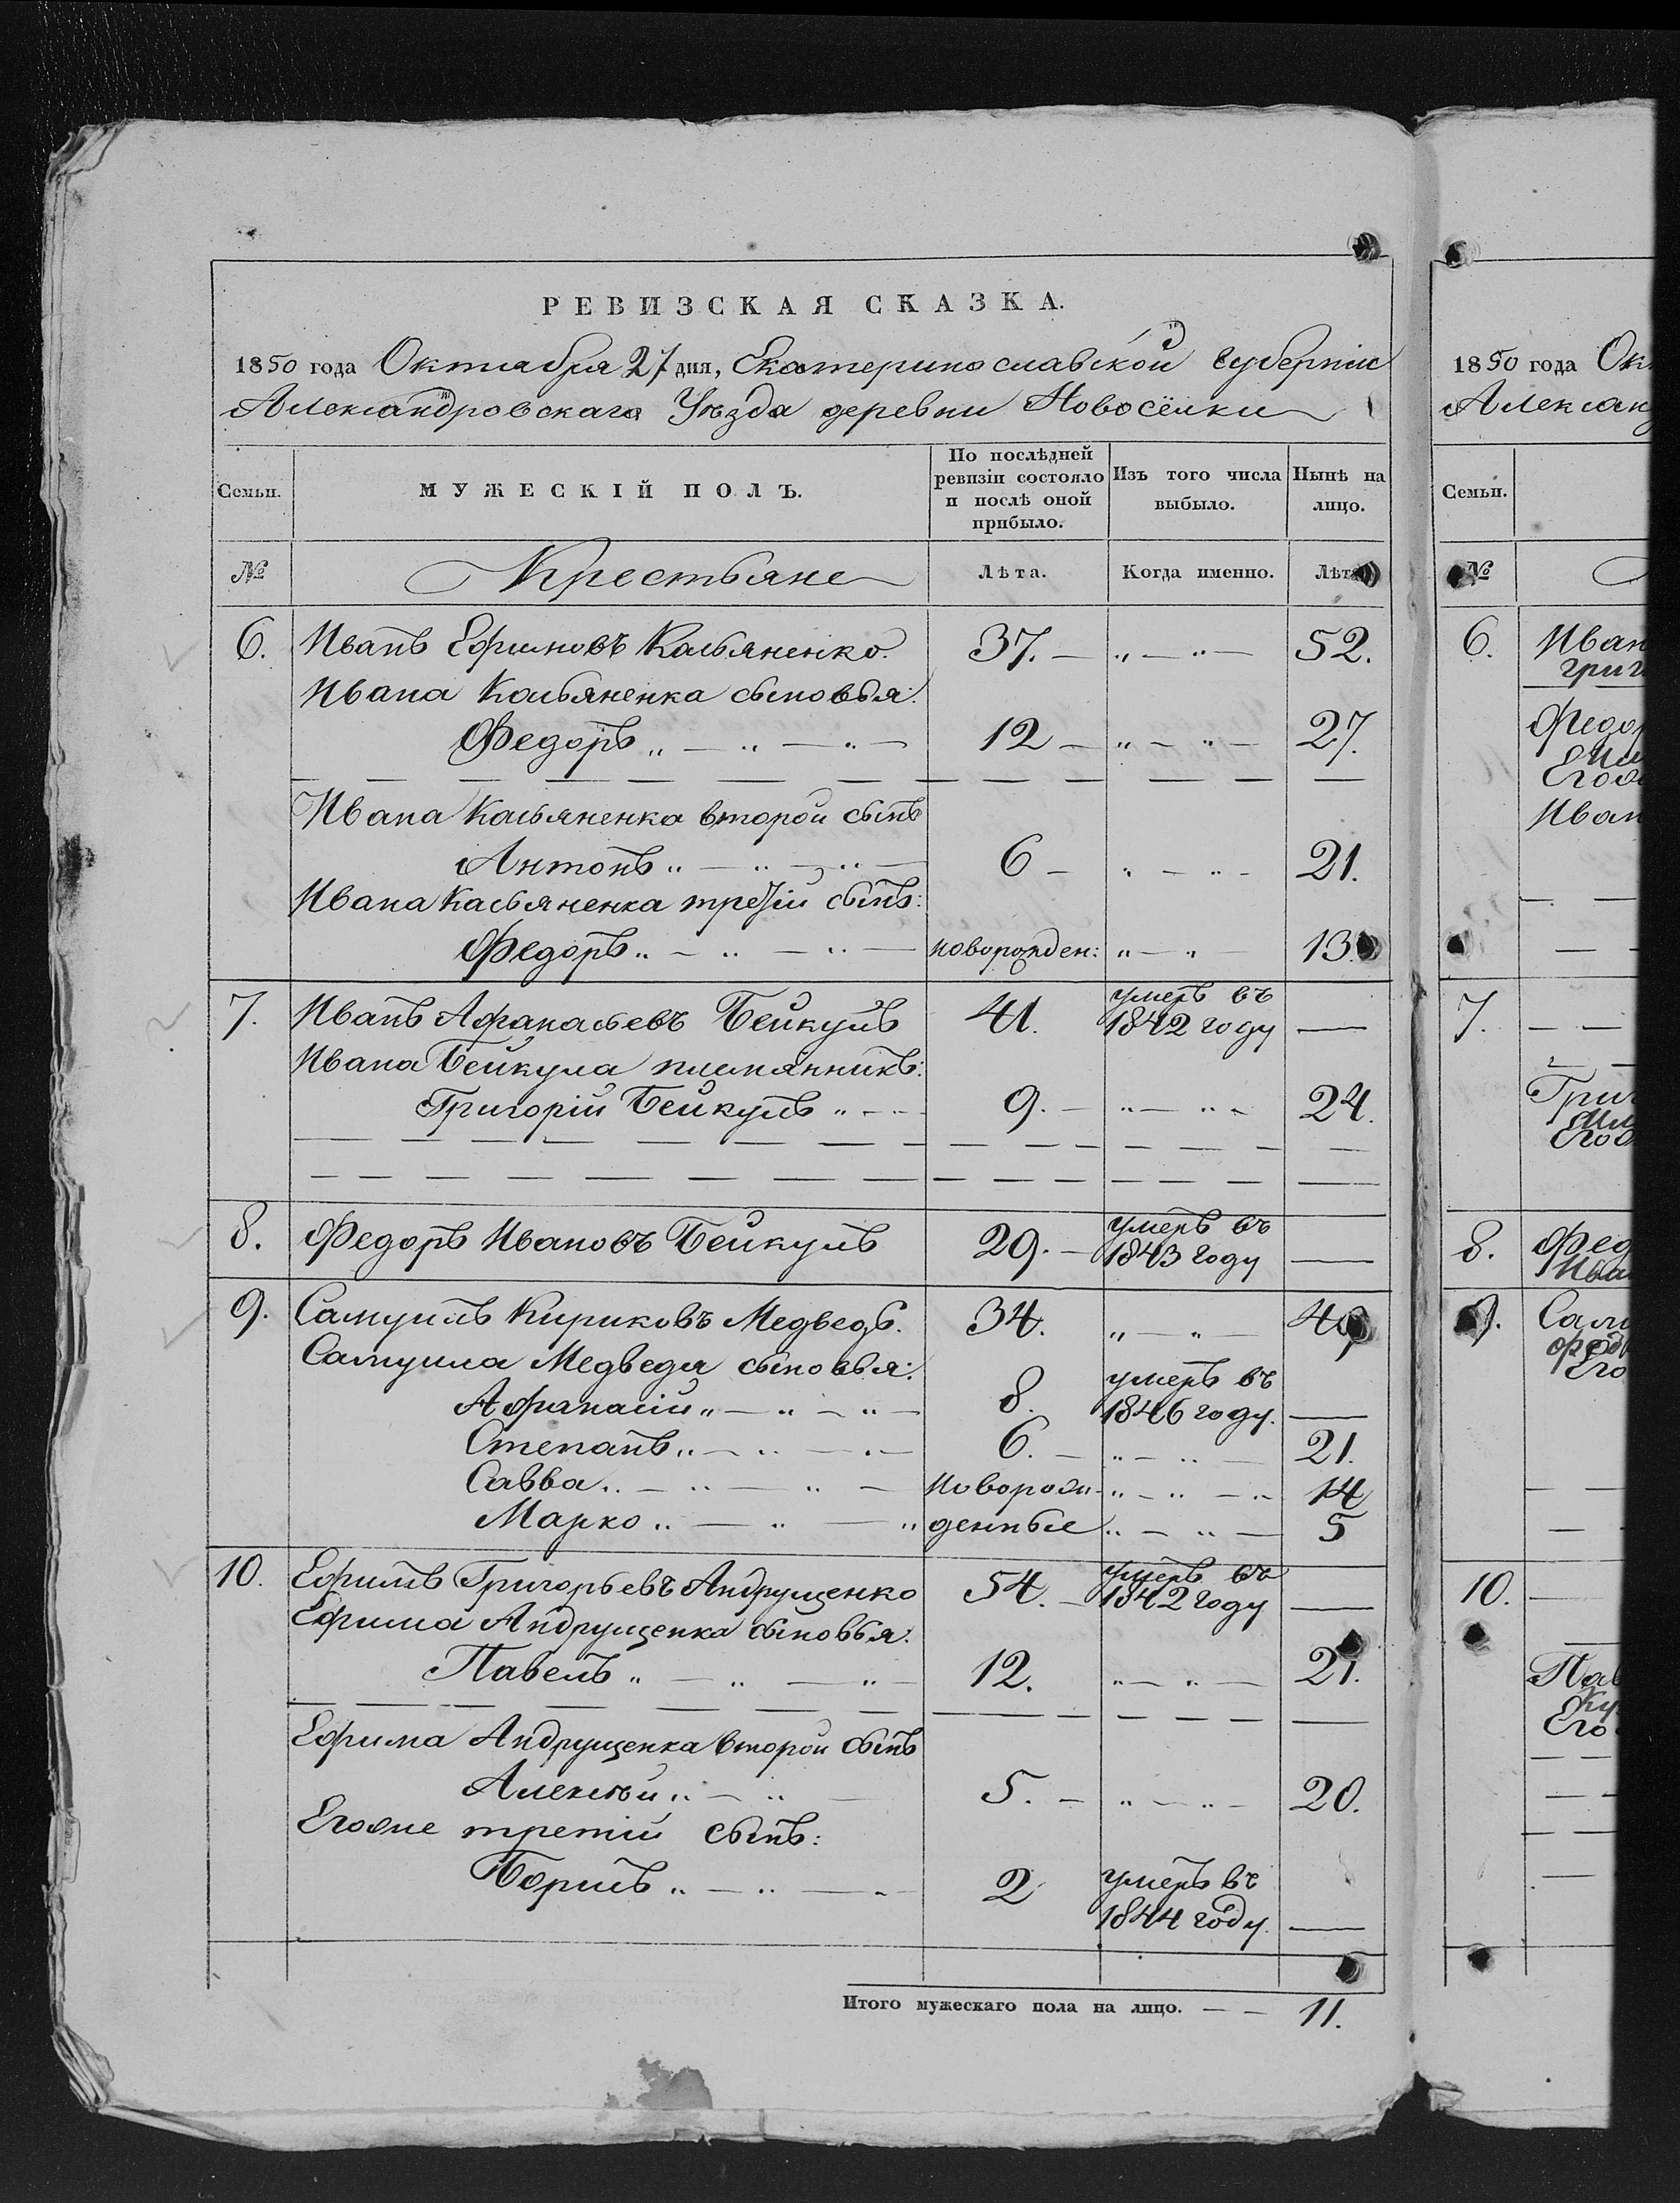 РЕВИЗСКАЯ СКАЗКА.
1850 года Октября 27 дня, Екатеринославской Губерніи
Александровскаго Уѣзда деревни Новосёлки
Семьи.
МУЖЕСКІЙ ПОЛЪ.
По послѣдней ревизіи состояло и послѣ оной прибыло.
Изъ того числа выбыло.
Нынѣ на лицо.
№ Крестьяне Лѣта. Когда именно. Лѣта
6. Иванъ Ефимовъ Касьяненко. 37. — „ — „ — 52.
Ивана Касьяненка сыновья:
Федоръ „ — „ — „ — 12 — „ — „ — 27.
Ивана Касьяненка второй сынъ
Антонъ „ — „ — „ — 6 — „ — „ - 21.
Ивана Касьяненка третій сынъ:
Федоръ „ — „ — „ — новорожден: „ — „ 13.
7. Иванъ Афанасьевъ Бейкулъ 41. умеръ въ 1842 году —
Ивана Бейкула племянникъ:
Григорій Бейкулъ „ - „ 9. — „ — „ - 24.
8. Федоръ Ивановъ Бейкулъ 29. — умеръ въ 1843 году —
9. Самуилъ Кириковъ Медведь. 34. „ — „ — 49
Самуила Медведя сыновья:
Афанасій „ — „ — „ — 8. умеръ въ 1846 году. —
Степанъ „ — „ — „ — 6. — „ — „ — 21.
Савва „ — „ — „ — новорож- „ — „ — „ 14
Марко „ — „ — „ денные „ — „ — 5
10. Ефимъ Григорьевъ Андрущенко 54. — умеръ въ 1842 году —
Ефима Андрущенка сыновья:
Павелъ „ — „ — „ — 12. „ — „ — 21.
Ефима Андрущенка второй сынъ
Алексѣй „ — „ — 5. — „ — „ — 20.
Егоже третій сынъ:
Борисъ „ — „ — „ 2 умеръ въ 1844 году. —
Итого мужескаго пола на лицо. — — 11.
1850 года
Семьи.
№
6.
7.
8.
9.
10.